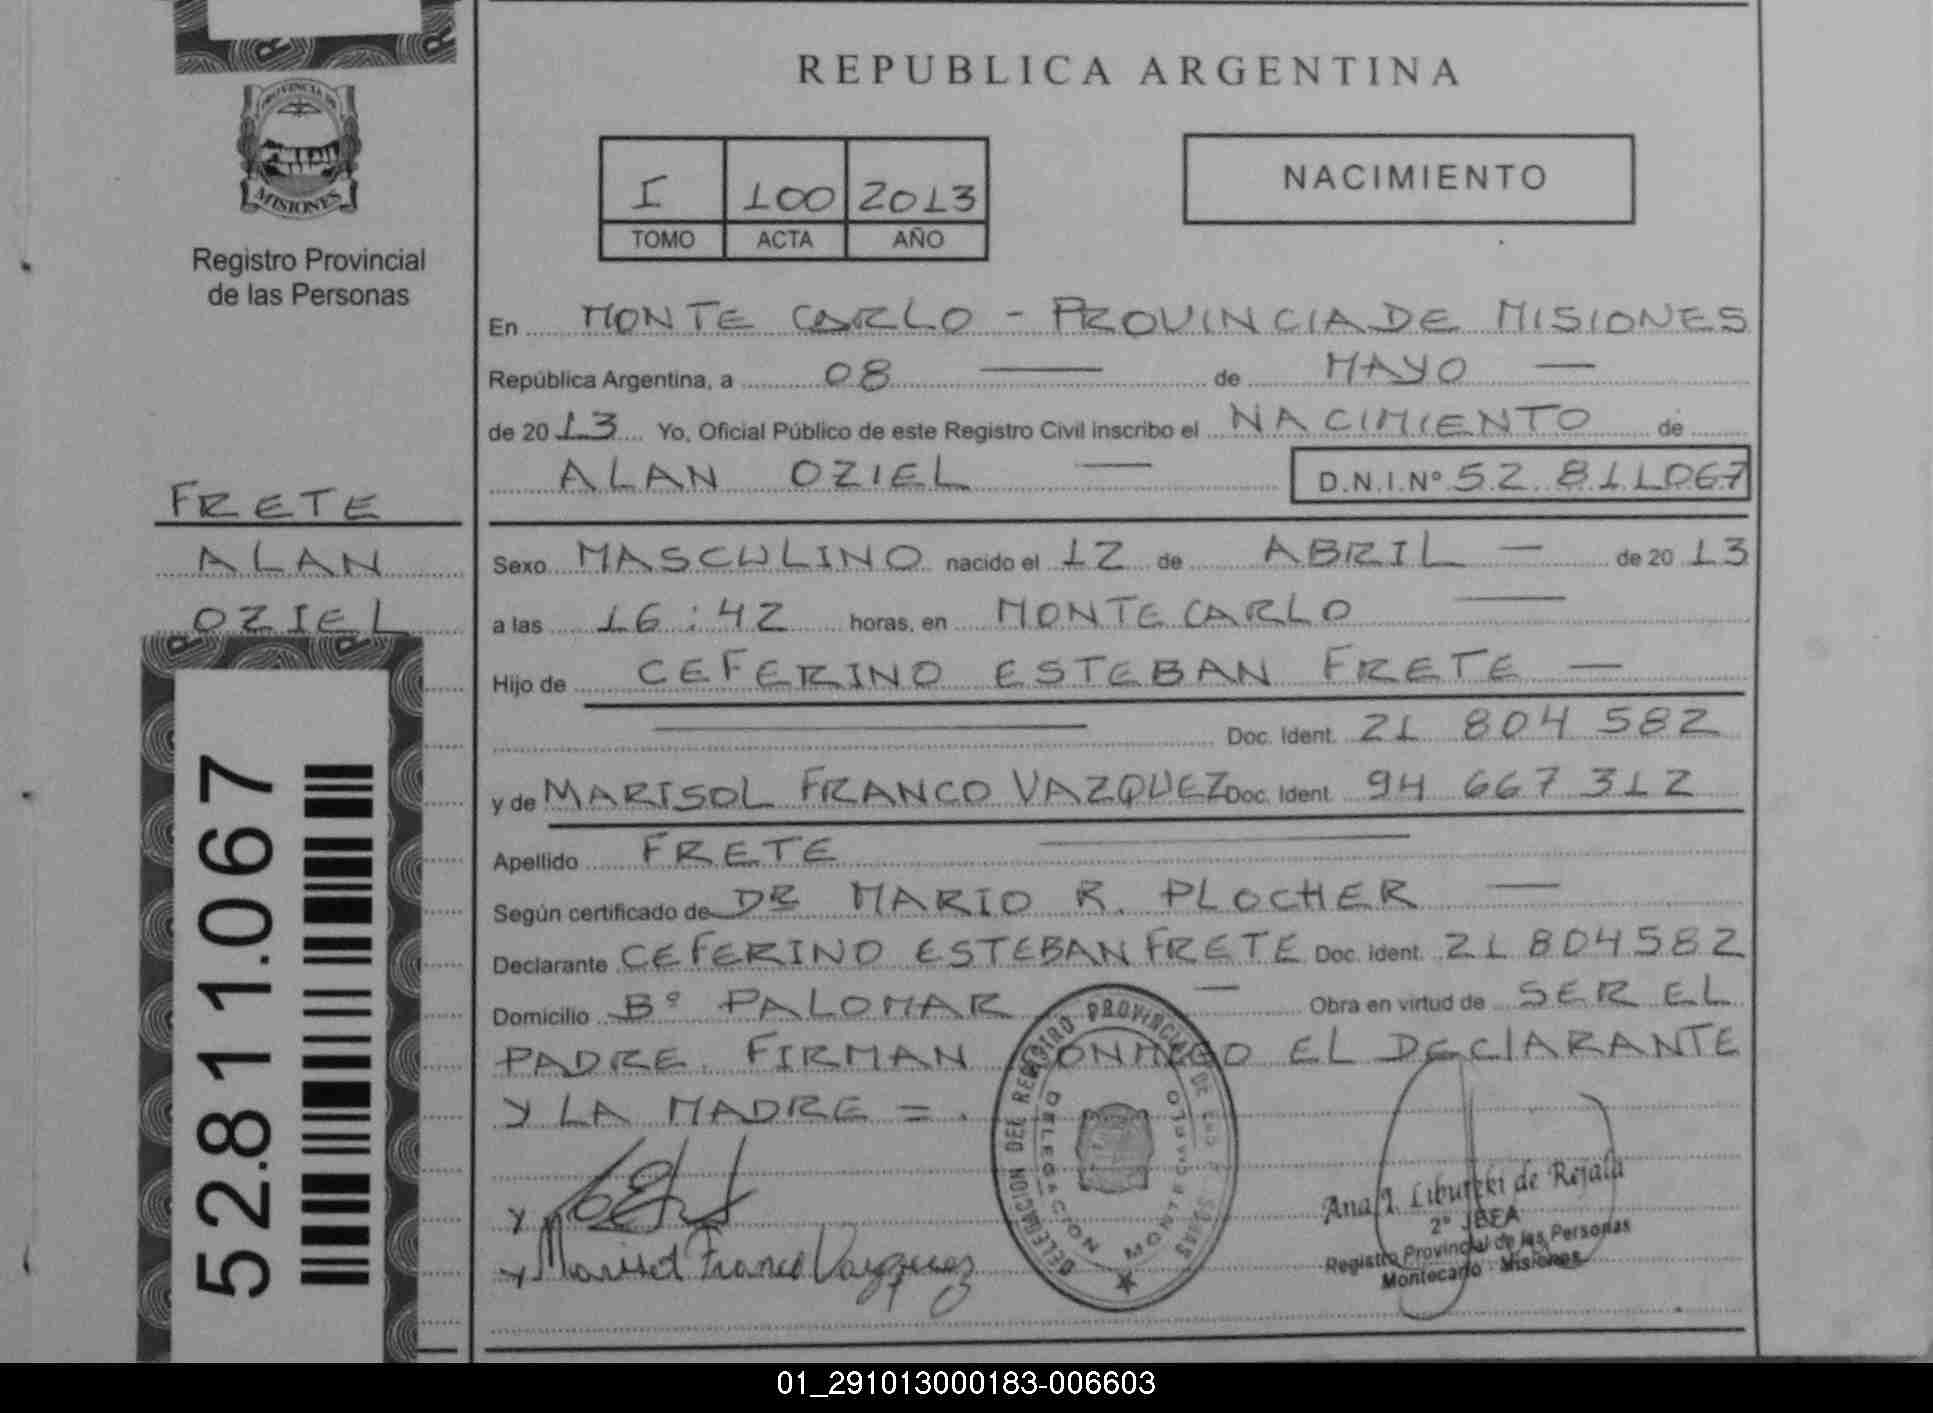 REPUBLICA ARGENTINA
PROVINCIA DE
MISIONES
Registro Provincial
de las Personas
I 100 2013
TOMO ACTA AÑO
NACIMIENTO
En MONTE CARLO - PROVINCIA DE MISIONES
República Argentina, a 08 — de MAYO —
de 2013 Yo, Oficial Público de este Registro Civil inscribo el NACIMIENTO de
ALAN OZIEL — D.N.I.Nº 52.811067
FRETE
ALAN
OZIEL
Sexo MASCULINO nacido el 12 de ABRIL — de 2013
a las 16:42 horas, en MONTECARLO —
Hijo de CEFERINO ESTEBAN FRETE —
— Doc. Ident. 21 804 582
y de MARISOL FRANCO VAZQUEZ Doc. Ident. 94 667 312
Apellido FRETE —
Según certificado de DR MARIO R. PLOCHER —
Declarante CEFERINO ESTEBAN FRETE Doc. Ident. 21 804582
Domicilio Bº PALOMAR — Obra en virtud de SER EL
PADRE. FIRMAN CONMIGO EL DECLARANTE
Y LA MADRE = .
52.811.067
Marisol Franco Vazquez
DELEGACION DEL REGISTRO PROVINCIAL DE LAS PERSONAS
DELEGACION MONTECARLO
Ana J. de Rejala
2º
Registro Provincial de las Personas
Montecarlo - Misiones
01_291013000183-006603